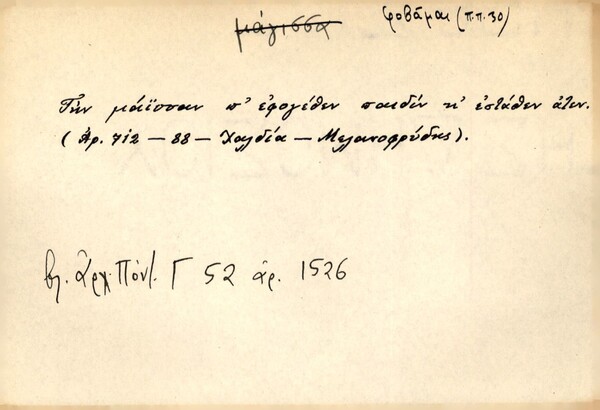 μάγισσα φοβάμαι (π.π. 30)
Τὴν μάϊσσαν π' ἐφογέθεν παιδὶν κ' ἐστάθεν ἀτεν.
(Ἀρ. 712 – 88 – Χαλδία – Μελανοφρύδης).
βλ. Ἀρχ. Πόντ. Γ 52 ἀρ. 1526